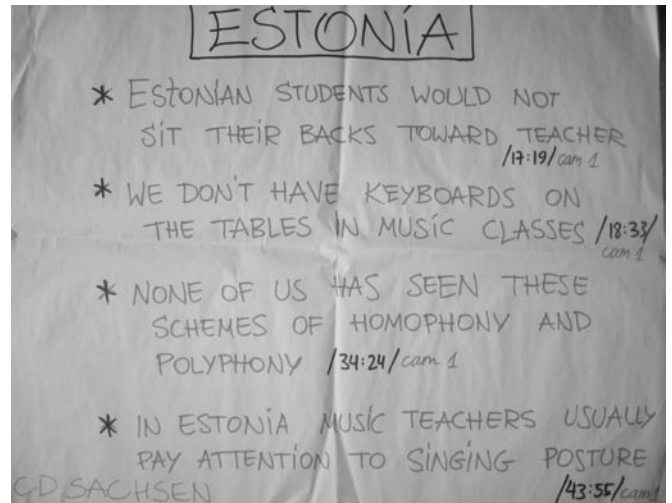 ESTONIA
* ESTONIAN STUDENTS WOULD NOT
SIT THEIR BACKS TOWARD TEACHER
/17:19/cam 1
* WE DON'T HAVE KEYBOARDS ON
THE TABLES IN MUSIC CLASSES /18:33/
cam 1
* NONE OF US HAS SEEN THESE
SCHEMES OF HOMOPHONY AND
POLYPHONY /34:24/cam 1
* IN ESTONIA MUSIC TEACHERS USUALLY
PAY ATTENTION TO SINGING POSTURE
GD SACHSEN /43:55/cam 1